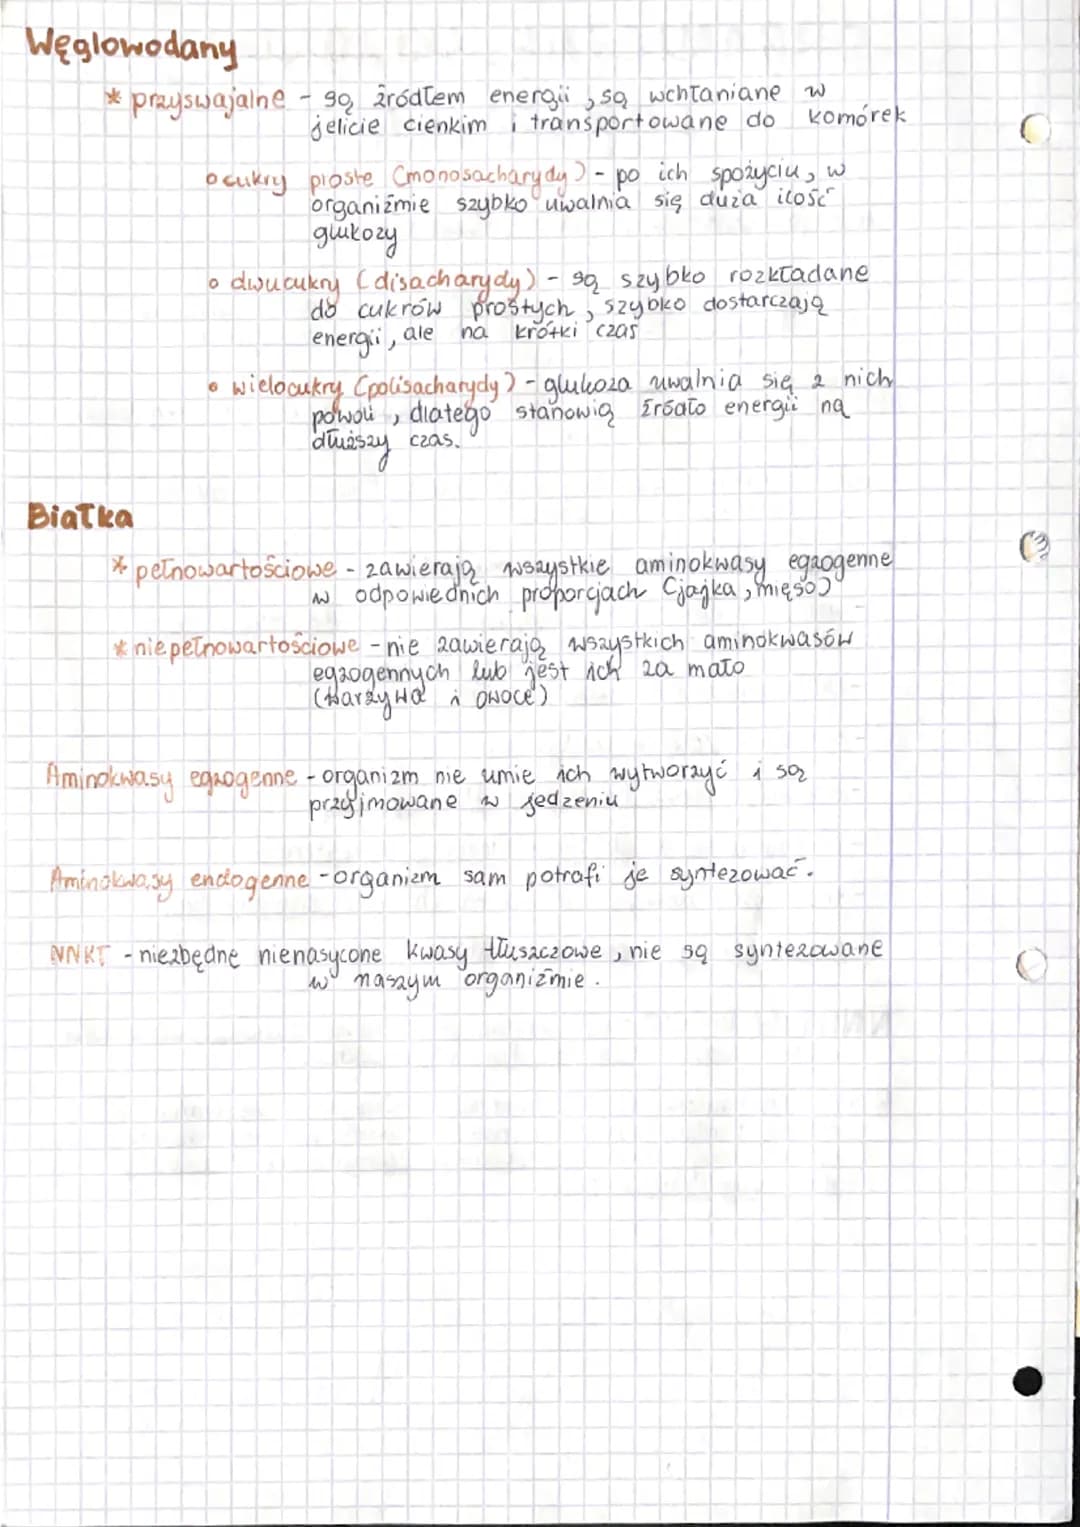 Węglowodany
* przyswajalne - są źródłem energii, są wchłaniane w
jelicie cienkim i transportowane do komórek
o cukry proste (monosacharydy) - po ich spożyciu, w
organiźmie szybko uwalnia się duża ilość
glukozy
o dwucukry (disacharydy) - są szybko rozkładane
do cukrów prostych, szybko dostarczają
energii, ale na krótki czas
o wielocukry (polisacharydy) - glukoza uwalnia się z nich
powoli, dlatego stanowią źródło energii na
dłuższy czas.
Białka
* pełnowartościowe - zawierają wszystkie aminokwasy egzogenne
w odpowiednich proporcjach (jajka, mięso)
* niepełnowartościowe - nie zawierają wszystkich aminokwasów
egzogennych lub jest ich za mało
(warzywa i owoce)
Aminokwasy egzogenne - organizm nie umie ich wytworzyć i są
przyjmowane w jedzeniu
Aminokwasy endogenne - organizm sam potrafi je syntezować.
NNKT - niezbędne nienasycone kwasy tłuszczowe, nie są syntezowane
w naszym organiźmie.